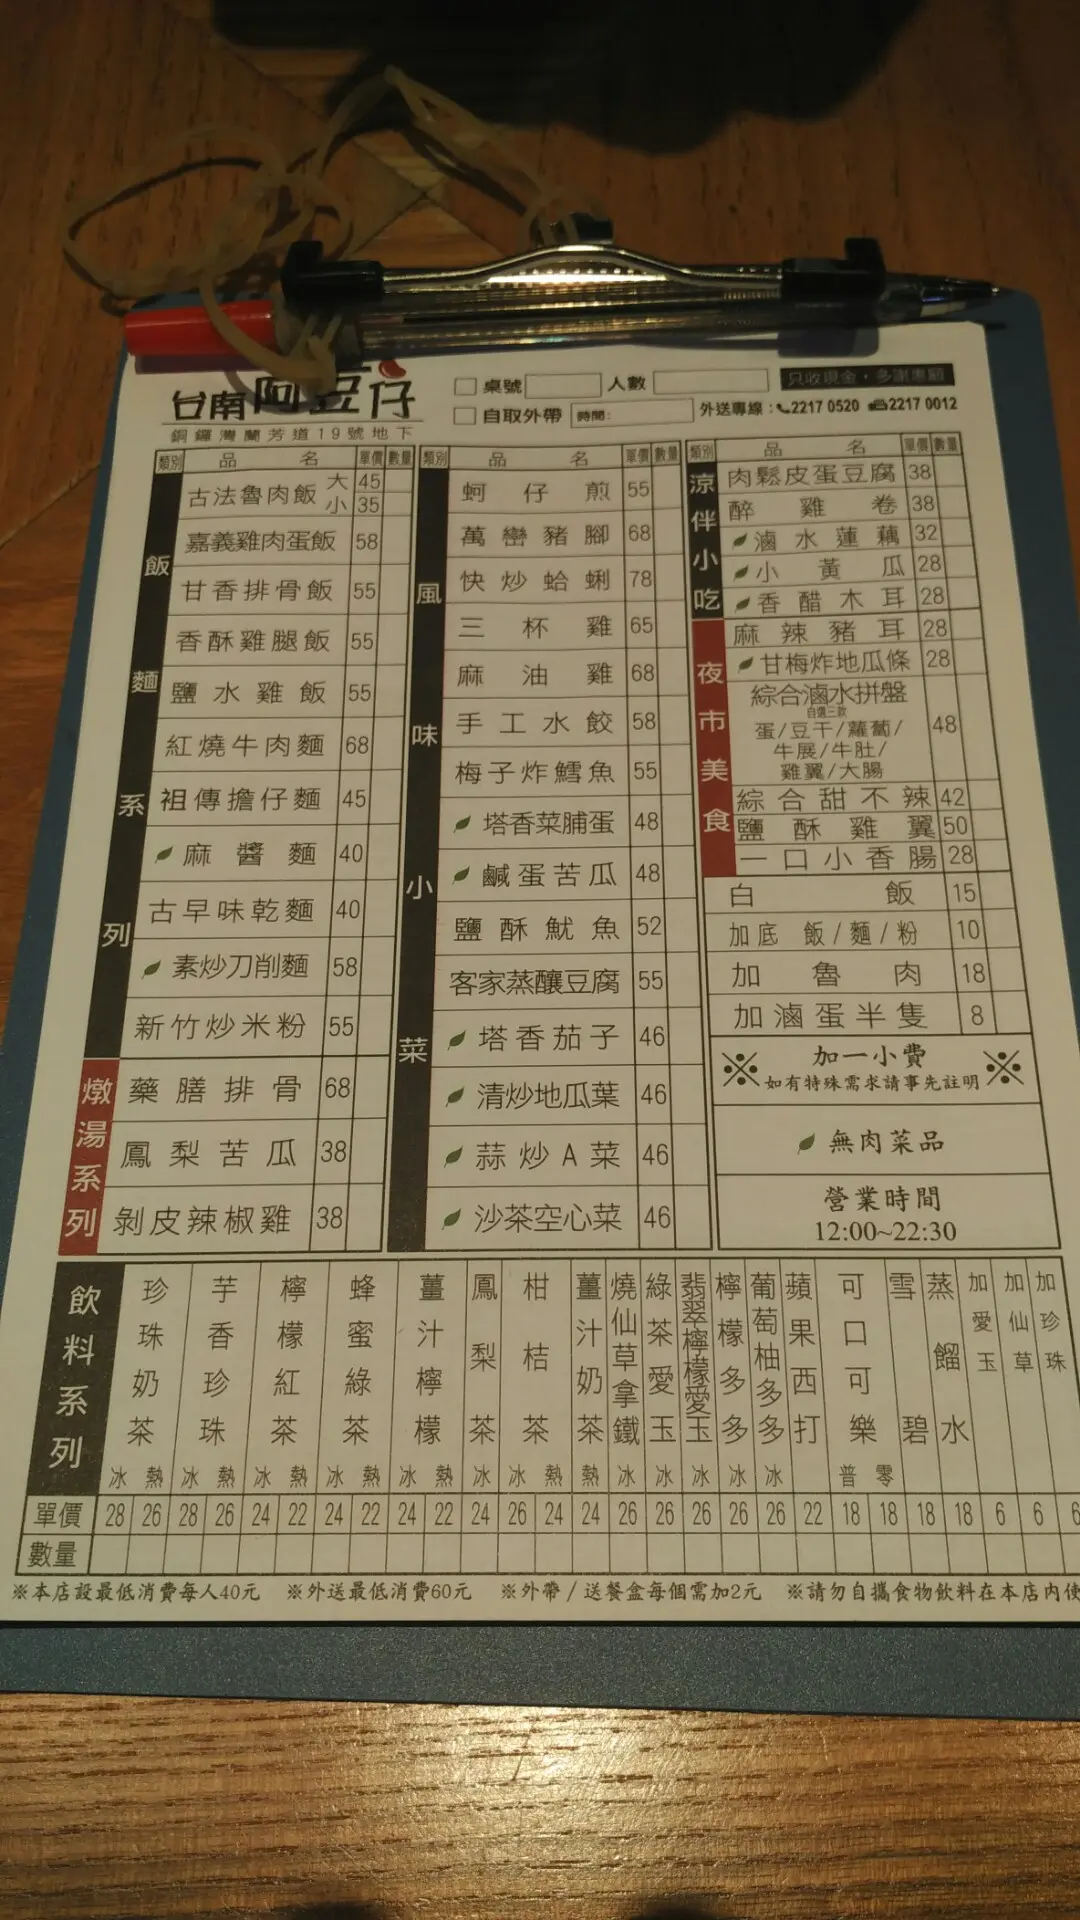 台南阿豆仔
銅鑼灣蘭芳道19號地下
桌號 人數 只收現金・多謝惠顧
自取外帶 時間: 外送專線:2217 0520 2217 0012
類別 品名 單價 數量
飯麵系列
古法魯肉飯 大 45
小 35
嘉義雞肉蛋飯 58
甘香排骨飯 55
香酥雞腿飯 55
鹽水雞飯 55
紅燒牛肉麵 68
祖傳擔仔麵 45
麻醬麵 40
古早味乾麵 40
素炒刀削麵 58
新竹炒米粉 55
燉湯系列
藥膳排骨 68
鳳梨苦瓜 38
剝皮辣椒雞 38
類別 品名 單價 數量
風味小菜
蚵仔煎 55
萬巒豬腳 68
快炒蛤蜊 78
三杯雞 65
麻油雞 68
手工水餃 58
梅子炸鱈魚 55
塔香菜脯蛋 48
鹹蛋苦瓜 48
鹽酥魷魚 52
客家蒸釀豆腐 55
塔香茄子 46
清炒地瓜葉 46
蒜炒A菜 46
沙茶空心菜 46
類別 品名 單價 數量
涼伴小吃
肉鬆皮蛋豆腐 38
醉雞卷 38
滷水蓮藕 32
小黃瓜 28
香醋木耳 28
夜市美食
麻辣豬耳 28
甘梅炸地瓜條 28
綜合滷水拼盤 48
自選三款
蛋/豆干/蘿蔔/
牛展/牛肚/
雞翼/大腸
綜合甜不辣 42
鹽酥雞翼 50
一口小香腸 28
白飯 15
加底 飯/麵/粉 10
加魯肉 18
加滷蛋半隻 8
※ 加一小費 ※
如有特殊需求請事先註明
無肉菜品
營業時間
12:00~22:30
飲料系列
珍珠奶茶 冰 熱
芋香珍珠 冰 熱
檸檬紅茶 冰 熱
蜂蜜綠茶 冰 熱
薑汁檸檬 冰 熱
鳳梨茶 冰
柑桔茶 冰 熱
薑汁奶茶 熱
燒仙草拿鐵 冰
綠茶愛玉 冰
翡翠檸檬愛玉 冰
檸檬多多 冰
葡萄柚多多 冰
蘋果西打
可口可樂 普 零
雪碧
蒸餾水
加愛玉
加仙草
加珍珠
單價 28 26 28 26 24 22 24 22 24 22 24 26 24 24 26 26 26 26 26 22 18 18 18 18 6 6 6
數量
※本店設最低消費每人40元 ※外送最低消費60元 ※外帶/送餐盒每個需加2元 ※請勿自攜食物飲料在本店內使